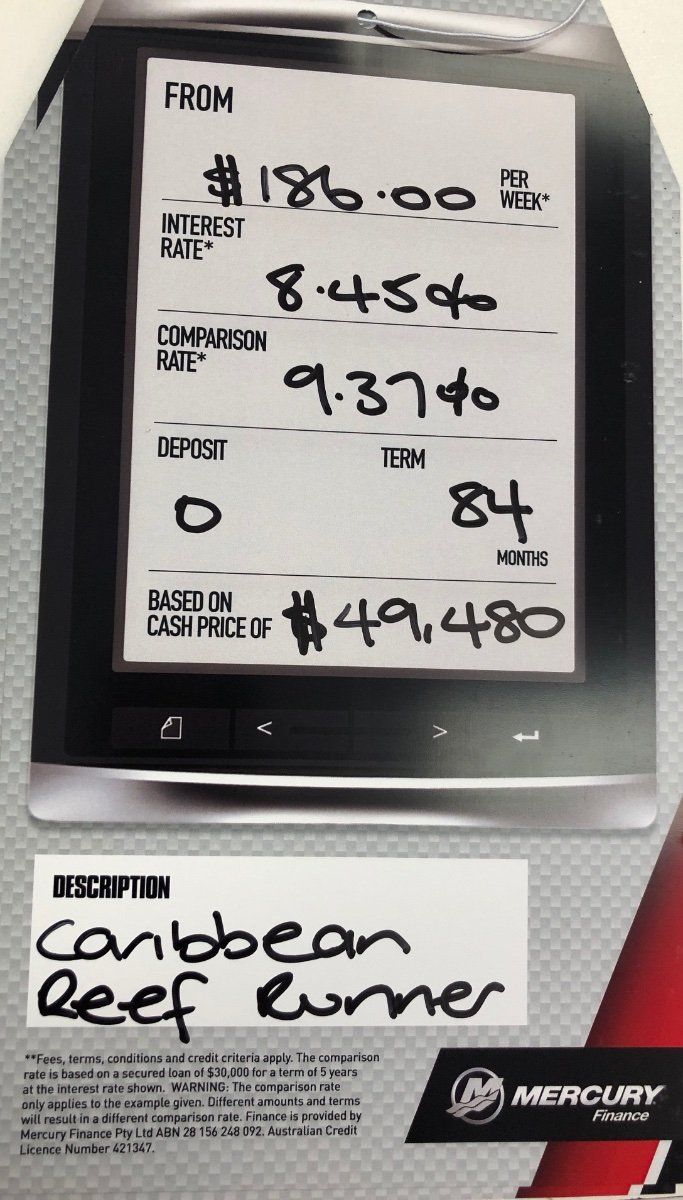 FROM
$186.00 PER WEEK*
INTEREST
RATE*
8.45%
COMPARISON
RATE*
9.37%
DEPOSIT TERM
0 84
MONTHS
BASED ON
CASH PRICE OF $49,480
< >
DESCRIPTION
Caribbean
Reef Runner
**Fees, terms, conditions and credit criteria apply. The comparison
rate is based on a secured loan of $30,000 for a term of 5 years
at the interest rate shown. WARNING: The comparison rate
only applies to the example given. Different amounts and terms
will result in a different comparison rate. Finance is provided by
Mercury Finance Pty Ltd ABN 28 156 248 092. Australian Credit
Licence Number 421347.
M MERCURY
Finance